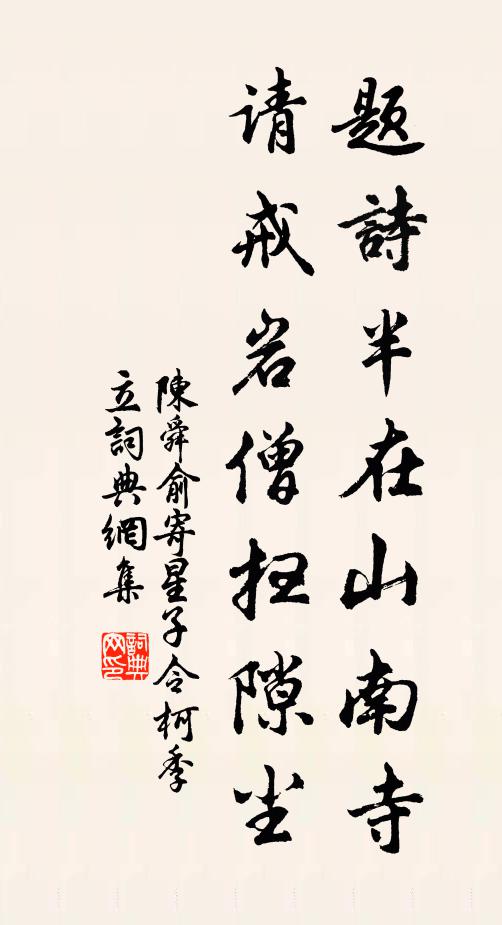 题詩半在山南寺
请戒岩僧扫隙尘
陳舜俞寄星子令柯季
立詞典網集
詞典网印